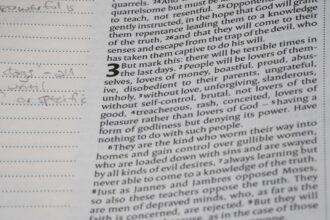 powerful is
quarrels.
quarrelsome but must be
to teach, not resentful. God will grant
gently repentance leading them to a knowledge
of the truth, and that they will come to their
senses and escape from the trap of the devil, who
has taken them captive to do his will.
3 But mark this: there will be terrible times in
the last days. ²People will be lovers of them-
selves, lovers of money, boastful, proud, abus-
ive, disobedient to their parents, ungrateful,
unholy, ³without love, unforgiving, slanderous,
without self-control, brutal, not lovers of the
good, ⁴treacherous, rash, conceited, lovers of
pleasure rather than lovers of God – ⁵having a
form of godliness but denying its power. Have
nothing to do with such people.
⁶They are the kind who worm their way into
homes and gain control over gullible women,
who are loaded down with sins and are swayed
by all kinds of evil desires, ⁷always learning but
never able to come to a knowledge of the truth.
⁸Just as Jannes and Jambres opposed Moses,
so also these teachers oppose the truth. They
are men of depraved minds, who, as far as the
faith is concerned, are rejected. ⁹But they will
because, as in the case of those